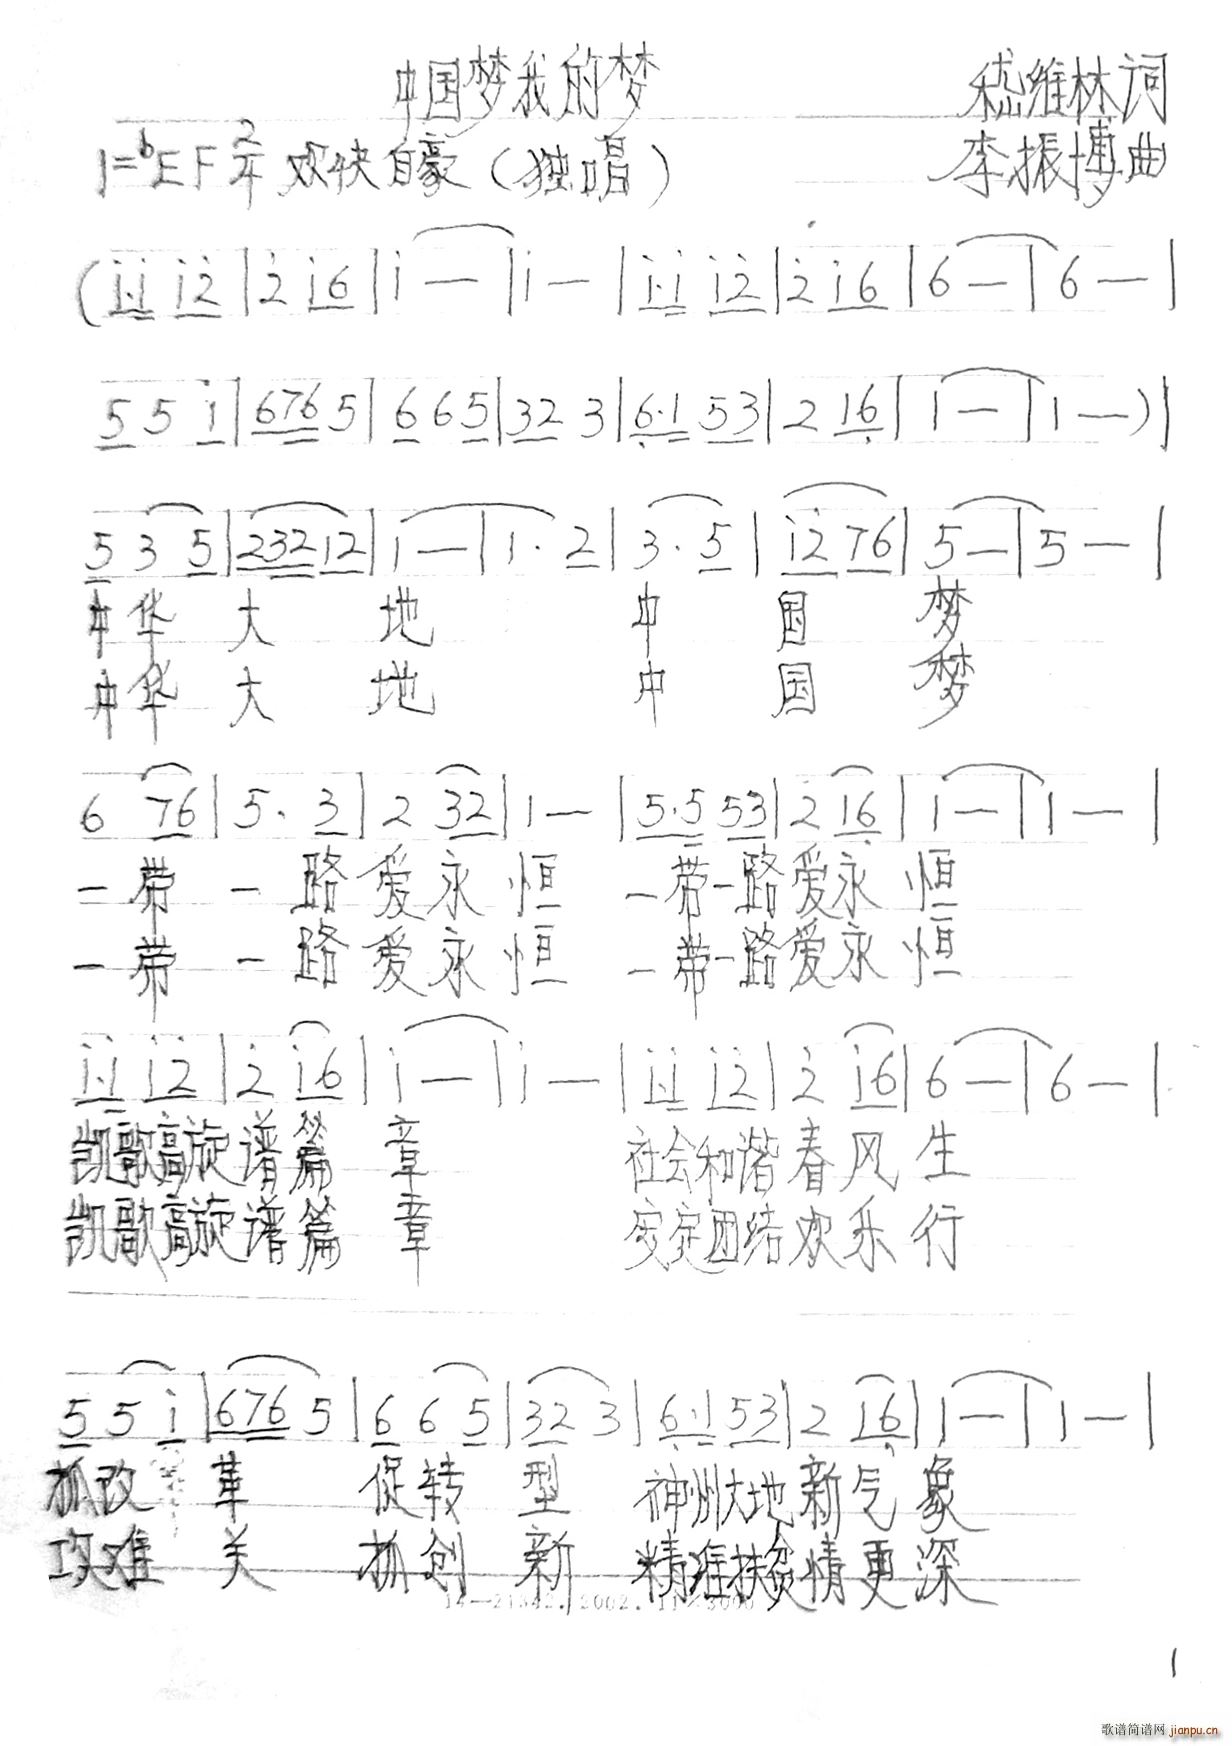 中国梦我的梦 嵇维林词
1=♭E F 2/4 欢快自豪(独唱) 李振博曲
(i·i i2|2 i6|i —|i —|i·i i2|2 i6|6 —|6 —|
5 5 i|676 5|6 6 5|32 3|6·1 53|2 16|1 —|1 —)|
5 3 5|23212|1 —|1· 2|3· 5|i2 76|5 —|5 —|
中华大地 中国梦
中华大地 中国梦
6 76|5· 3|2 32|1 —|5·5 53|2 16|1 —|1 —|
一带一路爱永恒 一带一路爱永恒
一带一路爱永恒 一带一路爱永恒
i·i i2|2 i6|i —|i —|i·i i2|2 i6|6 —|6 —|
凯歌高旋谱篇章 社会和谐春风生
凯歌高旋谱篇章 安定团结欢乐行
5 5 i|676 5|6 6 5|32 3|6·1 53|2 16|1 —|1 —|
抓改革 促转型 神州大地新气象
攻难关 抓创新 精准扶贫情更深
14—21342.2002.11×3000
1
歌谱简谱网 jianpu.cn